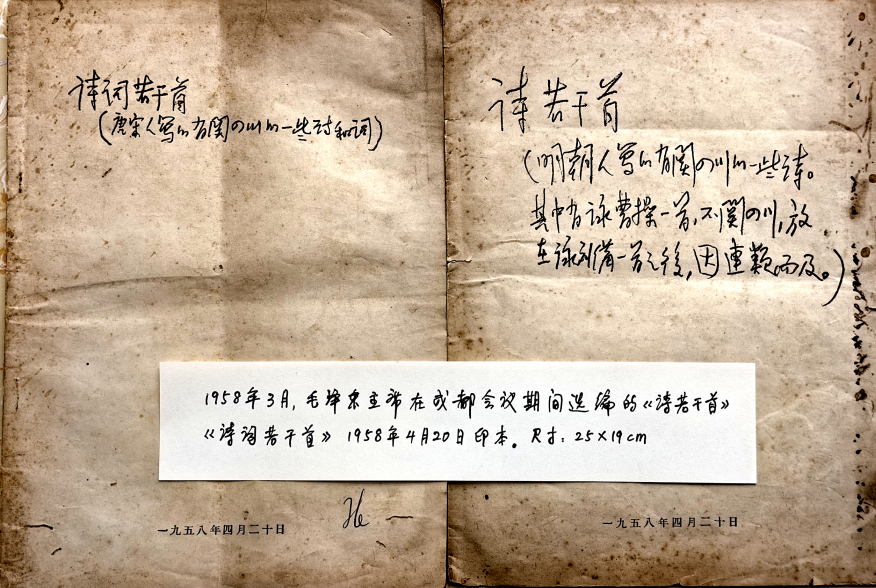 诗词若干首
(唐宋人写的有関四川的一些诗和词)
一九五八年四月二十日
诗若干首
(明朝人写的有関四川的一些诗。
其中有詠曹操一首,不関四川,放
在詠刘備一首之後,因連類而及。)
一九五八年四月二十日
1958年3月,毛泽东主席在成都会议期间选编的《诗若干首》
《诗词若干首》 1958年4月20日印本。尺寸:25×19cm